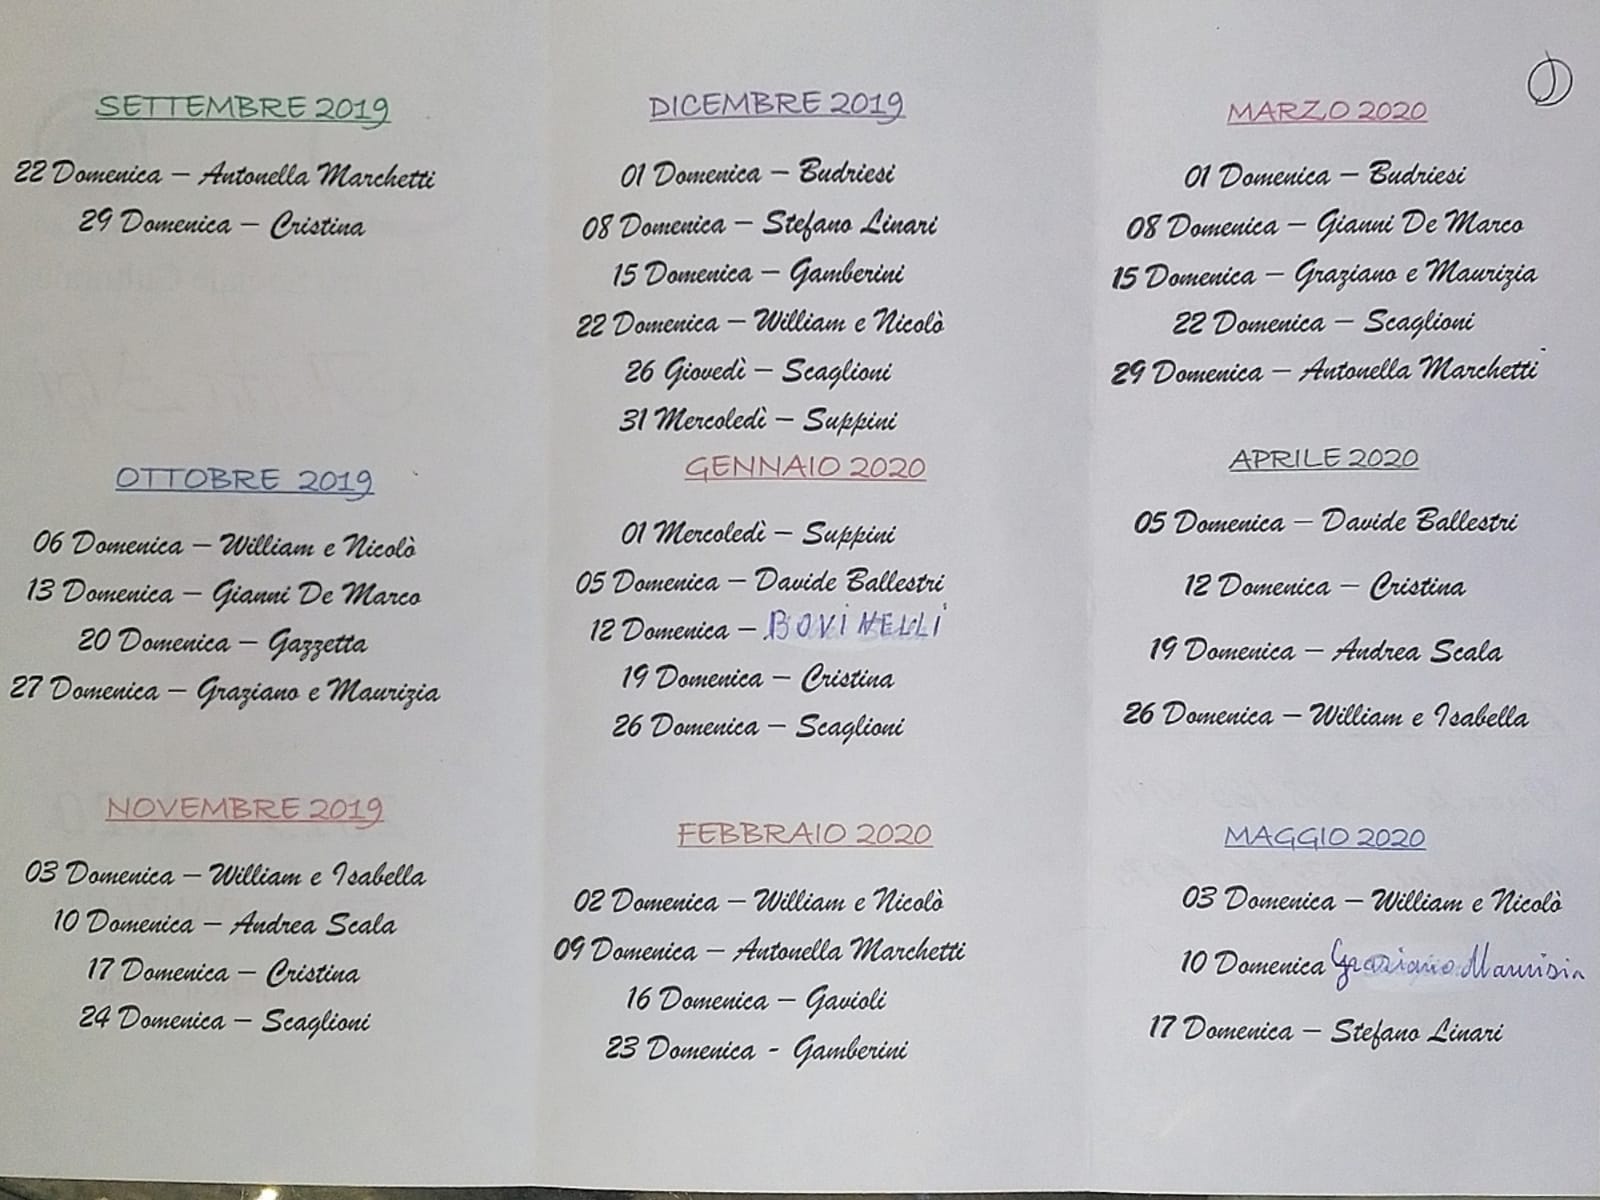 SETTEMBRE 2019
22 Domenica – Antonella Marchetti
29 Domenica – Cristina
OTTOBRE 2019
06 Domenica – William e Nicolò
13 Domenica – Gianni De Marco
20 Domenica – Gazzetta
27 Domenica – Graziano e Maurizia
NOVEMBRE 2019
03 Domenica – William e Isabella
10 Domenica – Andrea Scala
17 Domenica – Cristina
24 Domenica – Scaglioni
DICEMBRE 2019
01 Domenica – Budriesi
08 Domenica – Stefano Linari
15 Domenica – Gamberini
22 Domenica – William e Nicolò
26 Giovedì – Scaglioni
31 Mercoledì – Suppini
GENNAIO 2020
01 Mercoledì – Suppini
05 Domenica – Davide Ballestri
12 Domenica – BOVINELLI
19 Domenica – Cristina
26 Domenica – Scaglioni
FEBBRAIO 2020
02 Domenica – William e Nicolò
09 Domenica – Antonella Marchetti
16 Domenica – Gavioli
23 Domenica - Gamberini
MARZO 2020
01 Domenica – Budriesi
08 Domenica – Gianni De Marco
15 Domenica – Graziano e Maurizia
22 Domenica – Scaglioni
29 Domenica – Antonella Marchetti
APRILE 2020
05 Domenica – Davide Ballestri
12 Domenica – Cristina
19 Domenica – Andrea Scala
26 Domenica – William e Isabella
MAGGIO 2020
03 Domenica – William e Nicolò
10 Domenica Graziano Maurisia
17 Domenica – Stefano Linari